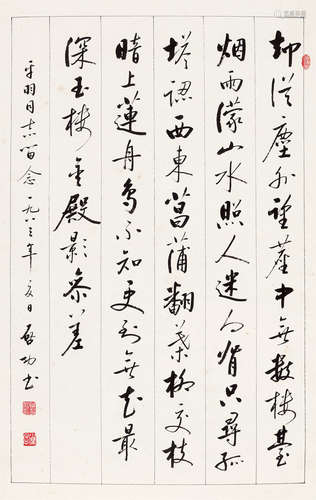 却從塵外望塵中無數樓臺
烟雨濛山水照人迷向背只尋孤
塔認西東菖蒲翻葉柳交枝
暗上蓮舟鳥不知更到無花最
深玉樓金殿影參差
平羽同志留念一九八三年夏日啓功書